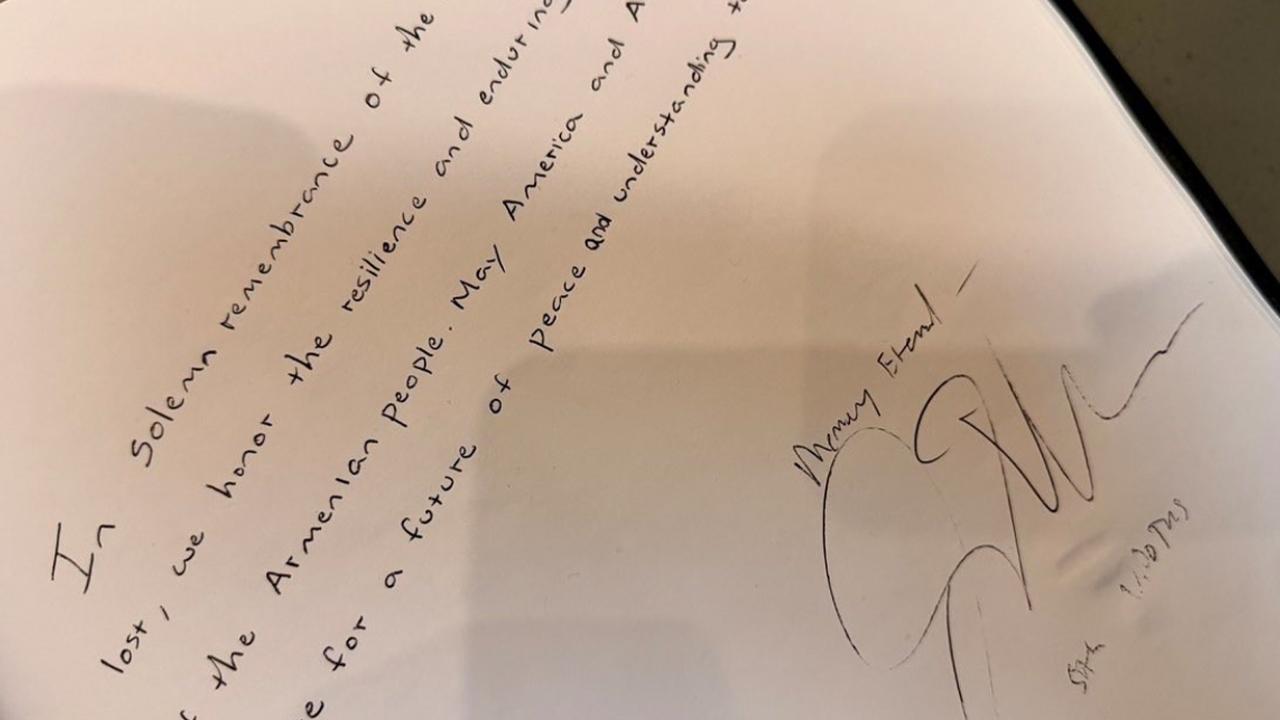 In Solemn remembrance of the
lost, we honor the resilience and enduring
the Armenian people. May America and A
for a future of peace and understanding
Memory Eternal -